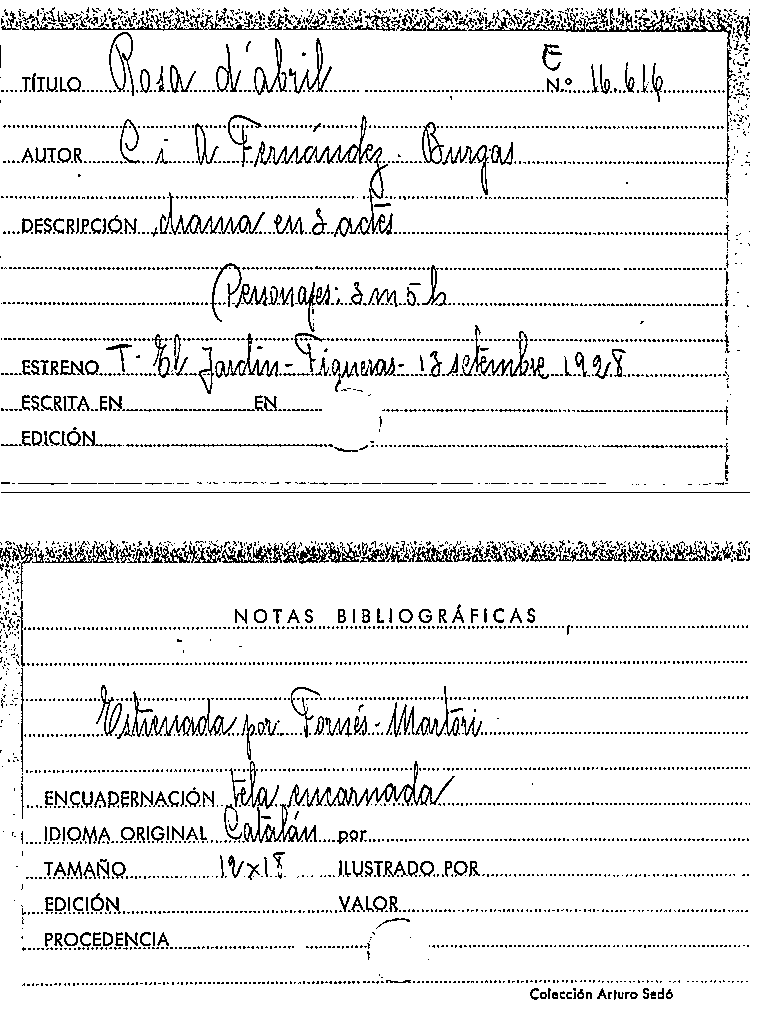 E
TÍTULO Rosa d'abril N.º 16.616
AUTOR C i A Fernández - Burgas
DESCRIPCIÓN drama en 3 actes
(Personajes: 3 m 5 h
ESTRENO T. El Jardin - Figueras - 13 setembre 1928
ESCRITA EN EN
EDICIÓN
NOTAS BIBLIOGRÁFICAS
Estrenada por Fornés - Martori
ENCUADERNACIÓN tela encarnada
IDIOMA ORIGINAL Catalán por
TAMAÑO 12x18 ILUSTRADO POR
EDICIÓN VALOR
PROCEDENCIA
Colección Arturo Sedó